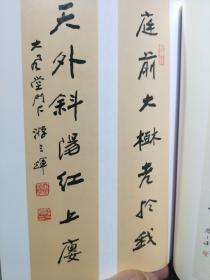 庭前大樹老於我
天外斜陽紅上廔
大風堂門下游三輝